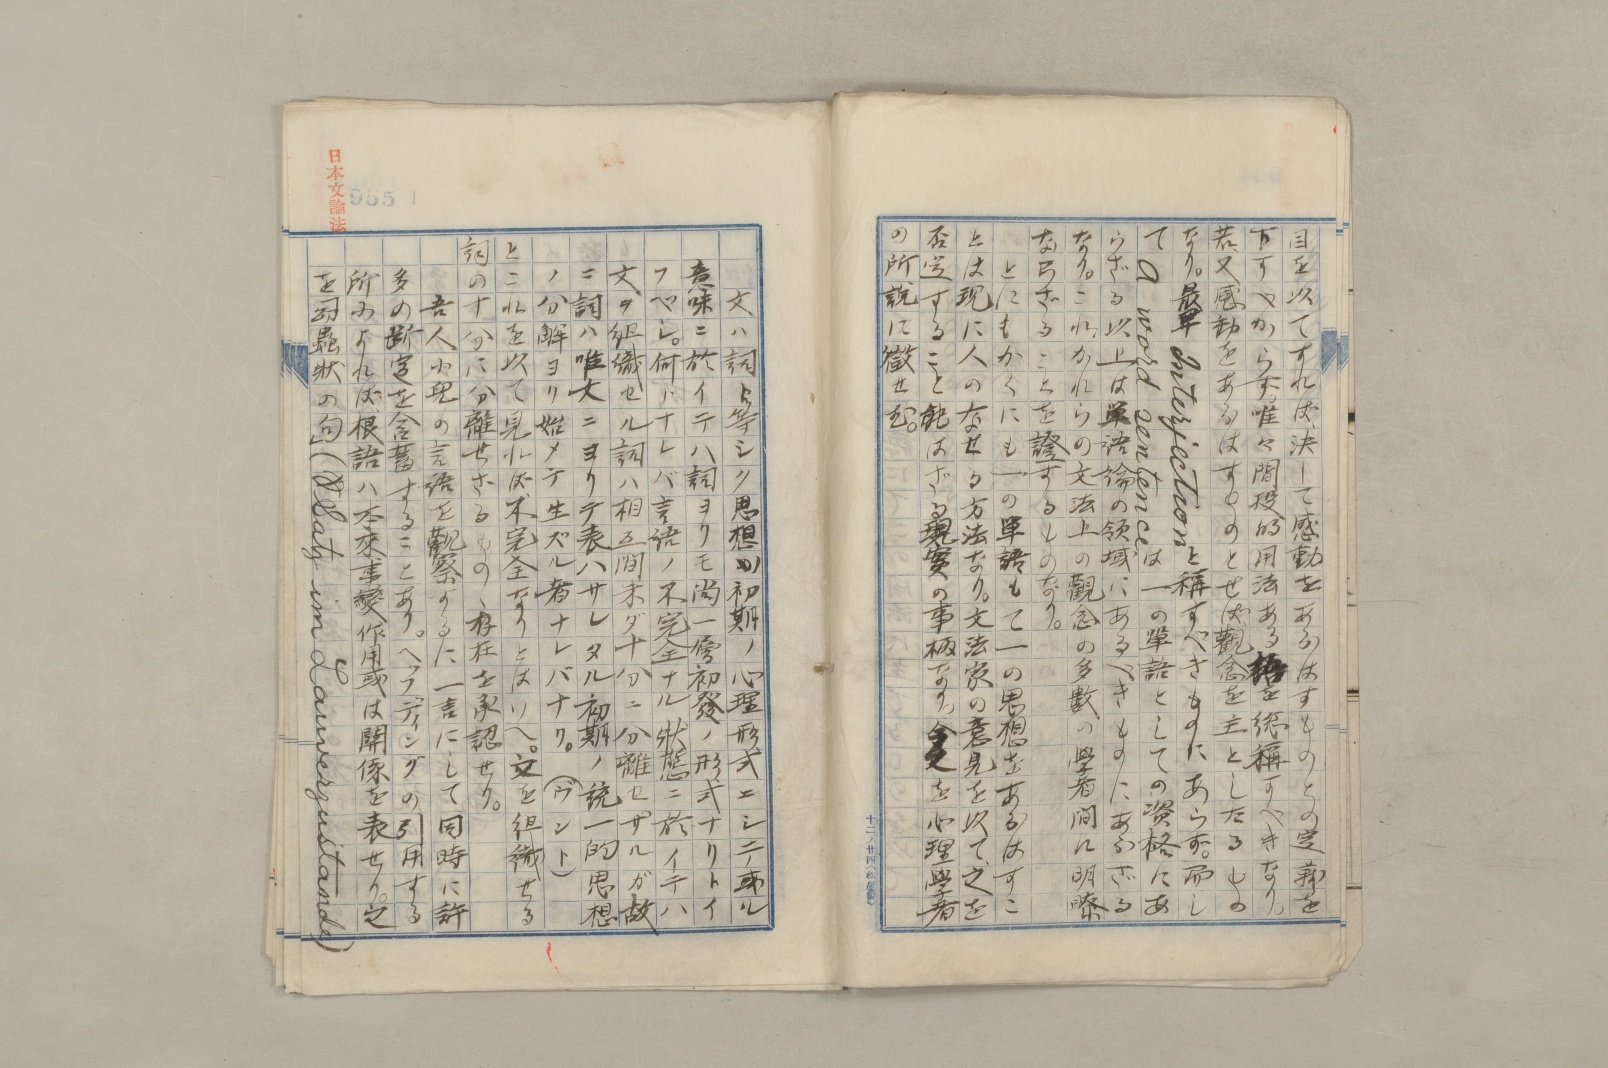 目を以てすれば決して感動をあらはすものとの定義を
下すべからず。唯々間投的用法ある語を総稱すべきなり。
若、又感動をあらはすものとせば觀念を主としたるもの
なり。最早 Interjection と稱すべきものにあらず。而し
て a word sentence は一の單語としての資格にあ
らざる以上は單語論の領域にあるべきものにあらざる
なり。これ、かれらの文法上の觀念の多數の學者間に明瞭
ならざることを證するものなり。
とにもかくにも一の單語もて一の思想をあらはすこ
とは現に人のなせる方法なり。文法家の意見を以て、之を
否定すること能はざる現實の事柄なり。今之を心理學者
の所説に徴せむ。
十二ノ廿四(松屋製)
日本文論法
955
文ハ詞ト等シク思想の初期ノ心理形式ニシテ或ル
意味ニ於イテハ詞ヨリモ尚一層初發ノ形式ナリトイ
フベシ。何トナレバ言語ノ不完全ナル狀態ニ於イテハ
文ヲ組織セル詞ハ相互間未ダ十分ニ分離セザルガ故
ニ詞ハ唯文ニヨリテ表ハサレタル初期ノ統一的思想
ノ分解ヨリ始メテ生ズル者ナレバナリ。(ヴント)
とこれを以て見れば不完全なりとはいへ。文を組織せる
詞の十分に分離せざるもの丶存在を承認せり。
吾人小兒の言語を觀察するに一言にして同時に許
多の斷定を含蓄することあり。ヘフディングの引用する
所によれば、根語ハ本來事變作用或は關係を表せり。之
を羽蟲狀の句」(